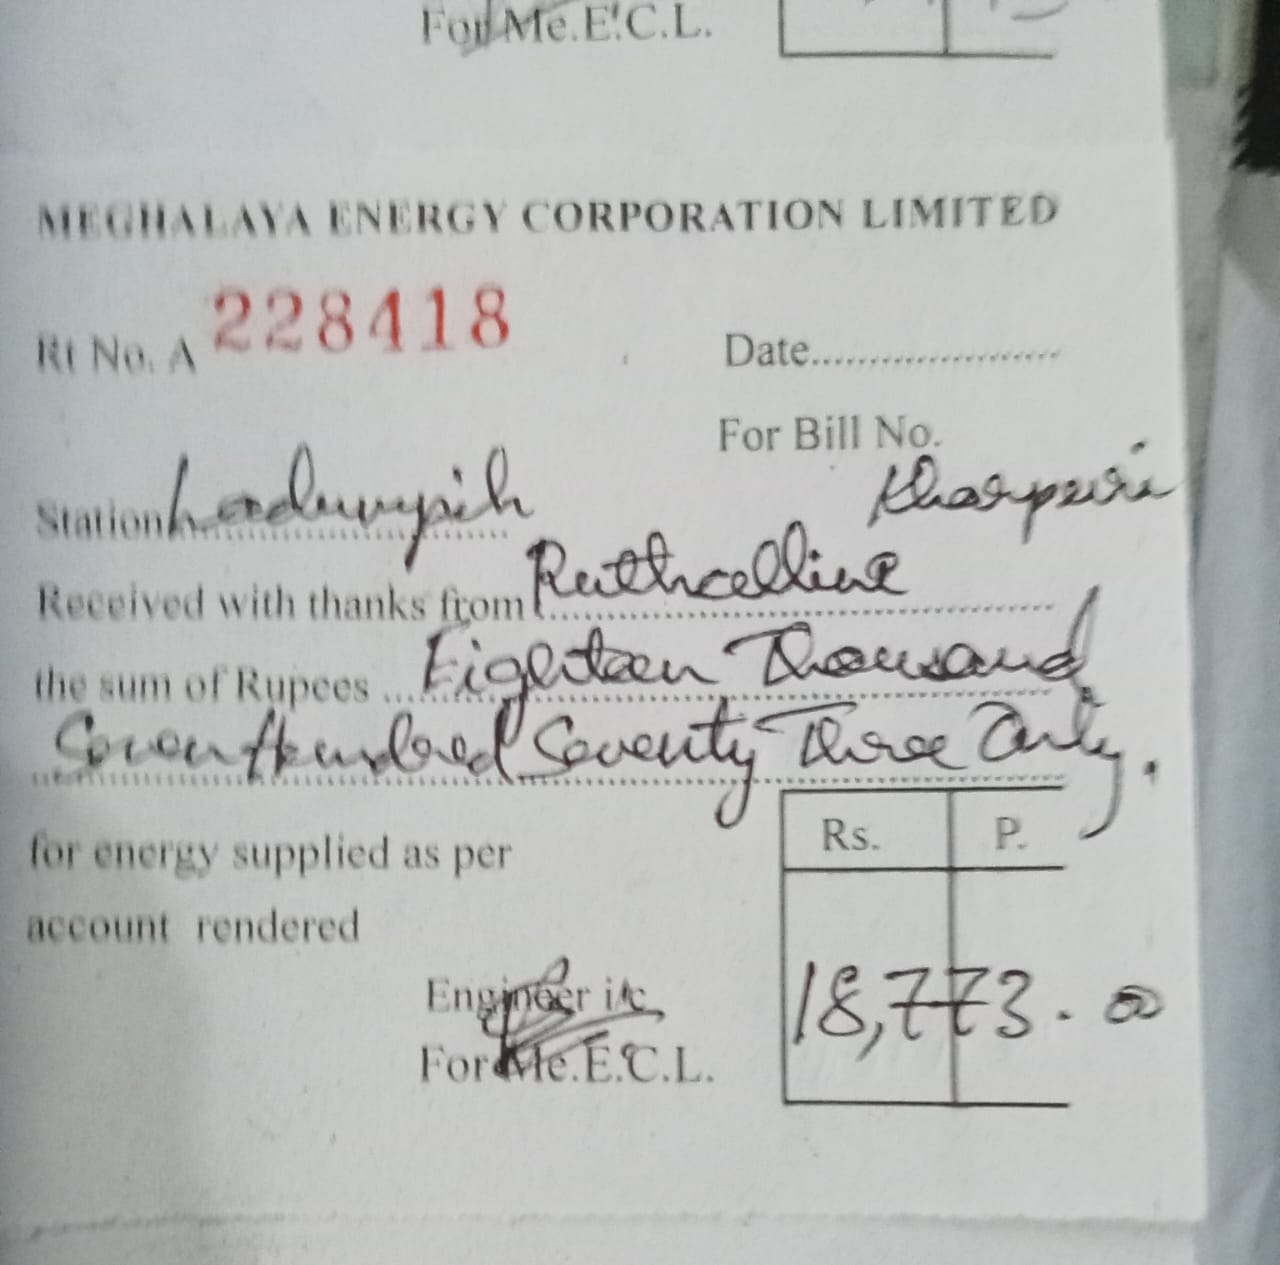 For Me.E.C.L.
MEGHALAYA ENERGY CORPORATION LIMITED
Rt No. A 228418
Date....................
For Bill No.
Station Ladumpih
Kharpuri
Received with thanks from Ruthcelline
the sum of Rupees Eighteen Thousand
Seven Hundred Seventy Three Only.
Rs. P.
for energy supplied as per
account rendered
18,773.00
Engineer i/c
For Me.E.C.L.